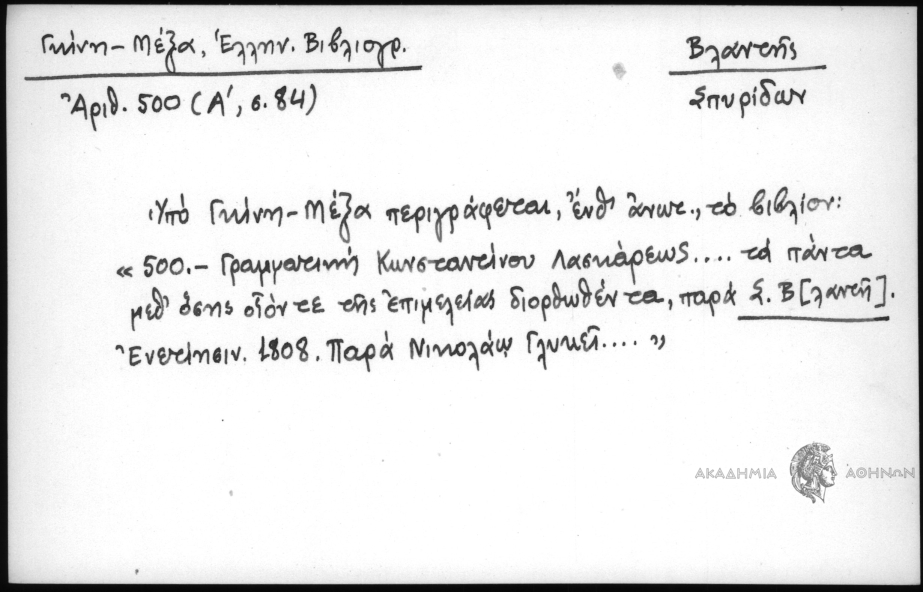 Γκίνη - Μέξα, Ἑλλην. Βιβλιογρ.
Ἀριθ. 500 (Α', σ. 84)
Βλαντῆς
Σπυρίδων
Ὑπό Γκίνη - Μέξα περιγράφεται, ἔνθ' ἄνωτ., τό βιβλίον:
« 500. - Γραμματική Κωνσταντίνου Λασκάρεως.... τά πάντα
μεθ' ὅσης οἷόντε τῆς ἐπιμελείας διορθωθέντα, παρά Σ. Β[λαντῆ].
Ἐνετίησιν. 1808. Παρά Νικολάῳ Γλυκεῖ.... »
ΑΚΑΔΗΜΙΑ ΑΘΗΝΩΝ